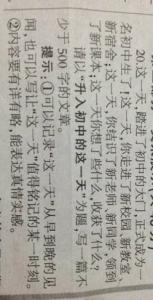 20.这一天，踏进了初中的大门，正式成为一
名初中生了！这一天，你走进了新校园、新教室、
新宿舍；这一天，你结识了新老师、新同学，领到
了新课本；这一天你想了些什么，收获了什么？
请以“升入初中的这一天”为题，写一篇不
少于500字的文章。
提示：①可以记录“这一天”从早到晚的见
闻，也可以写上“这一天”值得铭记的某一时刻。
②内容要有详有略，能表达真情实感。